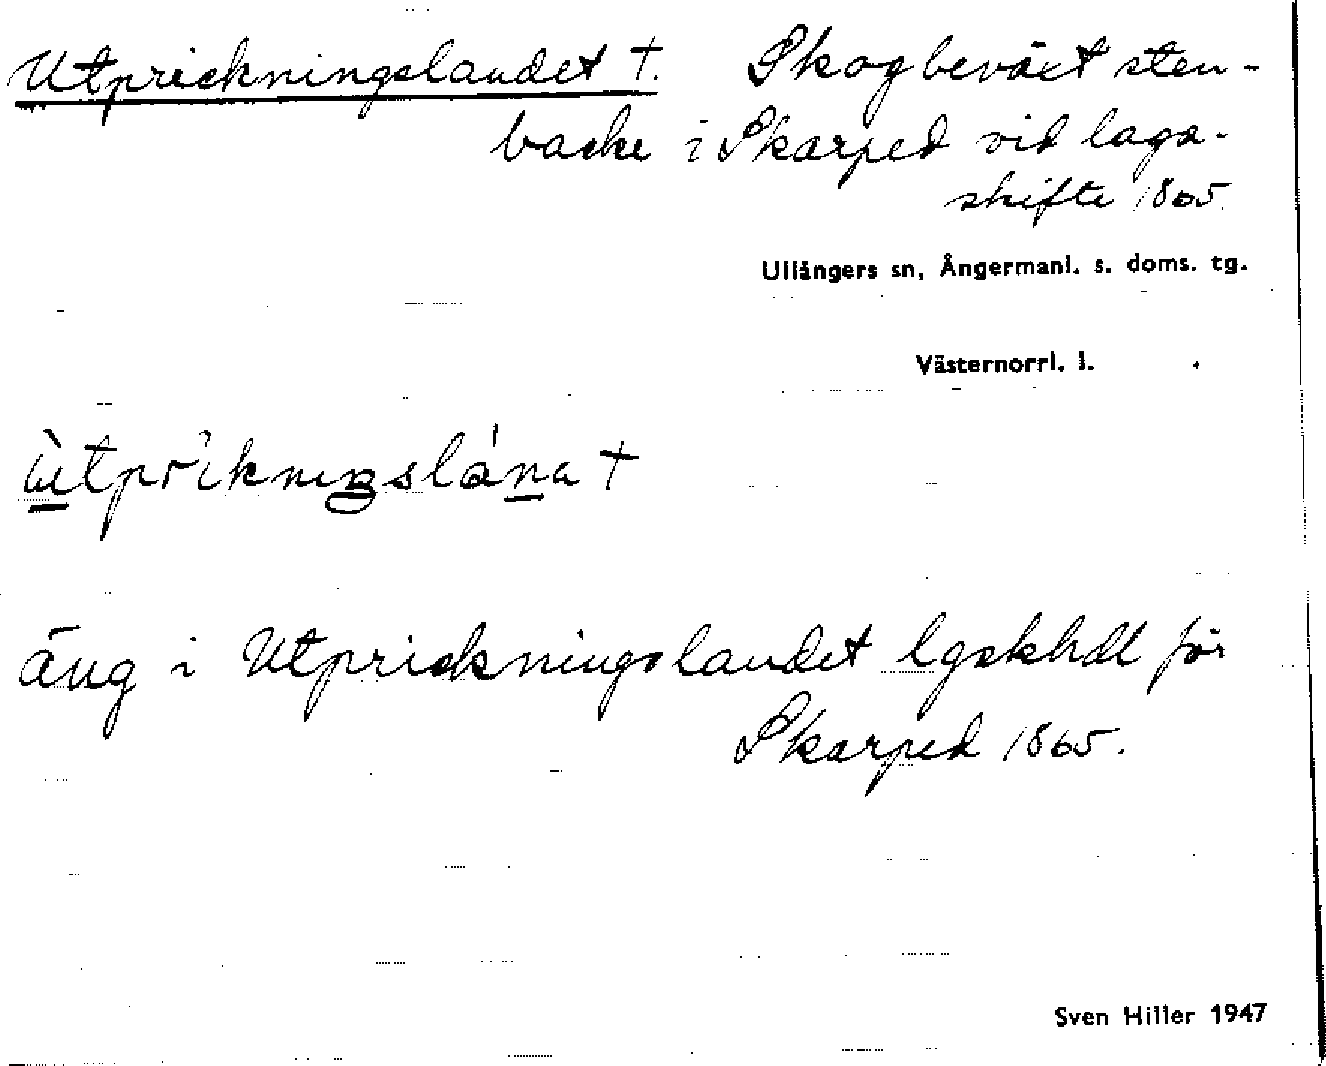 Utprickningslandet †. Skogbeväxt sten-
backe i Skarped vid laga-
skifte 1865.
Ullångers sn, Ångermanl. s. doms. tg.
Västernorrl. l.
ùtprìkniŋslána †
äng i Utprickningslandet lgskhdl för
Skarped 1865.
Sven Hiller 1947